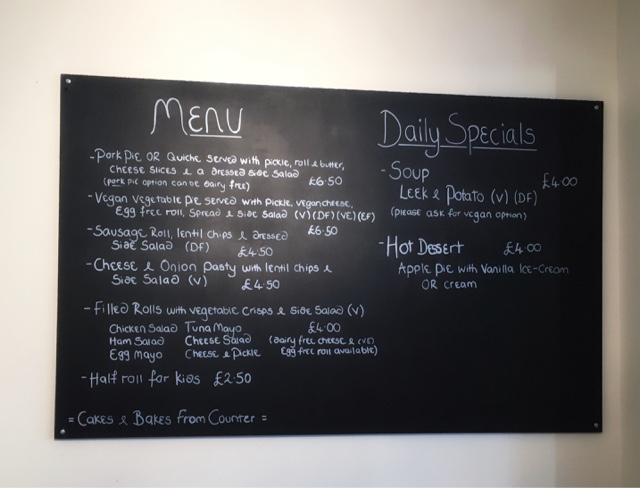 Menu
- Pork Pie OR Quiche served with pickle, roll & butter,
cheese slices & a dressed side salad
(pork pie option can be dairy free) £6.50
- Vegan Vegetable Pie served with pickle, vegan cheese,
Egg free roll, spread & side salad (V) (DF) (VE) (EF)
£6.50
- Sausage Roll, lentil chips & dressed
Side Salad (DF) £4.50
- Cheese & Onion Pasty with lentil chips &
Side Salad (V) £4.50
- Filled Rolls with vegetable crisps & side salad (V)
Chicken Salad Tuna Mayo £4.00
Ham Salad Cheese Salad (dairy free cheese & (VE)
Egg Mayo Cheese & Pickle Egg free roll available)
- Half roll for kids £2.50
= Cakes & Bakes from Counter =
Daily Specials
- Soup £4.00
Leek & Potato (V) (DF)
(please ask for vegan option)
- Hot Desert £4.00
Apple Pie with Vanilla Ice-Cream
OR cream